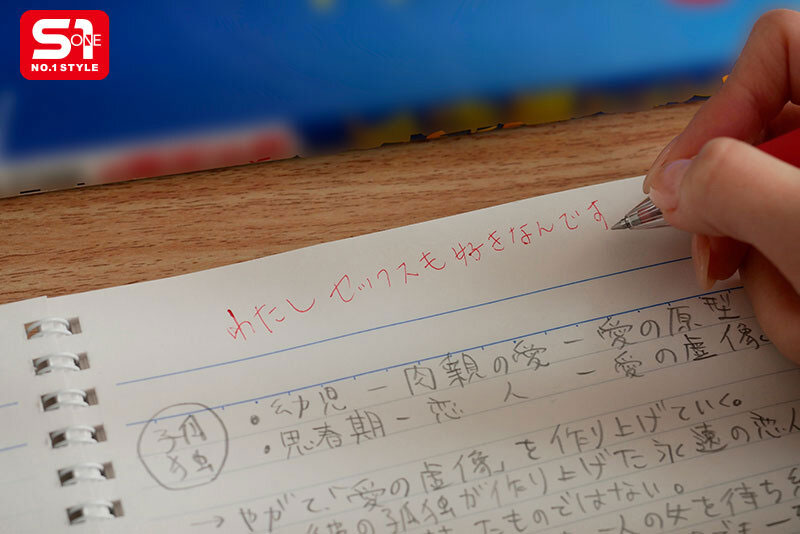 S1
ONE
NO.1 STYLE
わたし セックスも好きなんです
孤独
・幼児 － 肉親の愛 － 愛の原型
・思春期 － 恋人 － 愛の虚像
→ やがて「愛の虚像」を作り上げていく。
の孤独が作り上げた永遠の恋人
たものではない。
一人の女を待ち